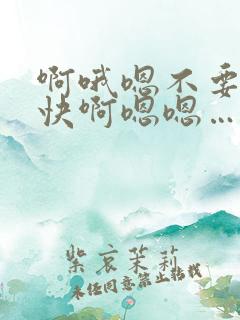 啊哦嗯不要
快啊嗯嗯…
紫哀茉莉
未经同意禁止转载